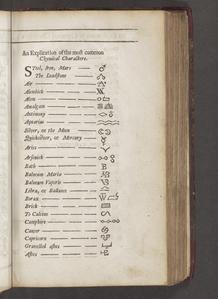 An Explication of the most common
Chymical Characters.
Steel, Iron, Mars ♂
The Loadstone
Air
Alembick
Alom
Amalgam
Antimony
Aquarius ♒
Silver, or the Moon
Quicksilver, or Mercury ☿
Aries ♈
Arsenick
Bath
Balneum Mariæ
Balneum Vaporis
Libra, or Ballance ♎
Borax
Brick
To Calcine
Camphire
Cancer ♋
Capricorn ♑
Gravelled ashes
Ashes